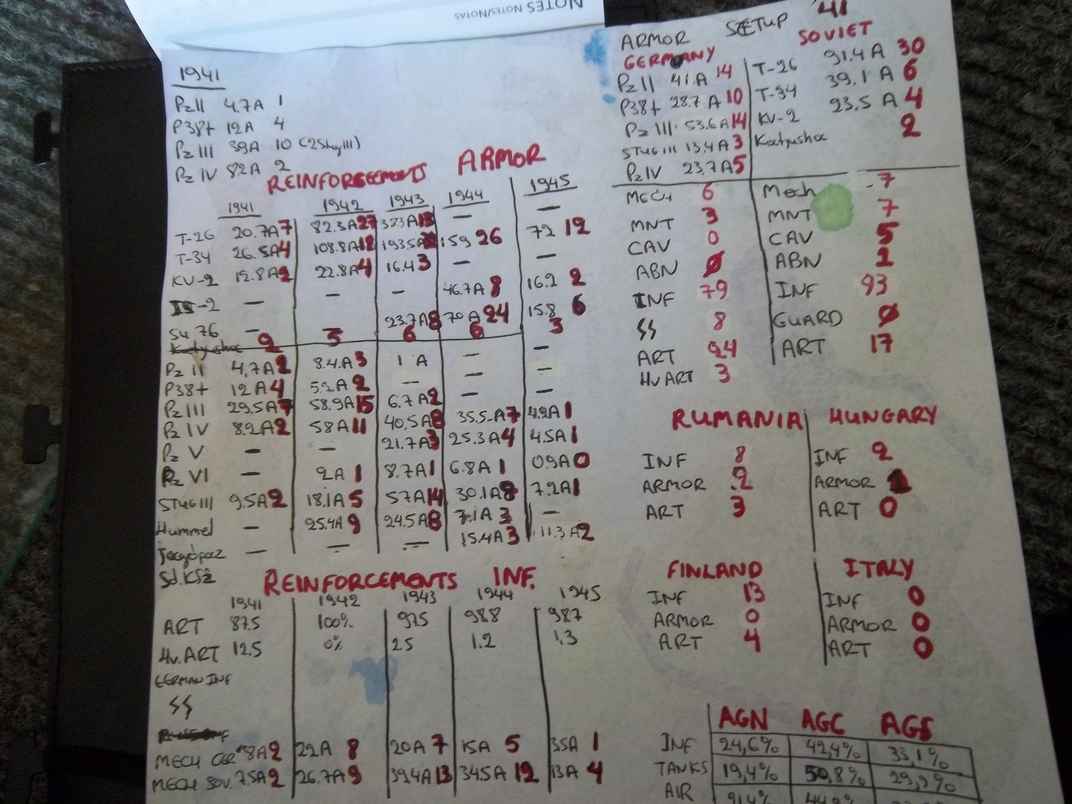 NOTES NOTES/NOTAS
1941
Pz II 4.7A 1
P38t 12A 4
Pz III 39A 10 (2 Stug III)
Pz IV 82A 2
REINFORCEMENTS ARMOR
1941 1942 1943 1944 1945
T-26 20.7A 7 82.3A 27 383A 13 — —
T-34 26.5A 4 108.8A 18 193.5A 159 26 72 12
KV-2 12.8A 2 22.8A 4 16.4 3 — —
IS-2 — — — 46.7A 8 16.2 2
SU 76 — — 23.7A 8 70A 24 15.8 6
Katyusha 2 3 6 6 3
Pz II 4,7A 2 8.4A 3 1 A — —
P38t 12A 4 5.2A 2 — — —
Pz III 29.5A 7 58.9A 15 6.7A 2 — —
Pz IV 8.2A 2 58A 11 40.5A 8 35.5A 7 4.9A 1
Pz V — — 21.7A 3 25.3A 4 4.5A 1
Pz VI — 2A 1 8.7A 1 6.8A 1 09A 0
STUG III 9.5A 2 18.1A 5 57A 14 30.1A 8 7.2A 1
Hummel — 25.4A 9 24.5A 8 7.1A 3 —
— — — 15.4A 3 11.3A 2
Sd.Kfz
REINFORCEMENTS INF.
1941 1942 1943 1944 1945
ART 87.5 100% 97.5 98.8 98.7
Hv. ART 12.5 0% 2.5 1.2 1.3
GERMAN INF
SS
MECH GER 8A 2 22A 8 20A 7 15A 5 3.5A 1
MECH SOV. 7.5A 2 26.7A 9 39.4A 13 34.5A 12 13A 4
ARMOR SETUP '41
GERMANY SOVIET
Pz II 41.A 14 T-26 91.4A 30
P38t 28.7A 10 T-34 39.1A 6
Pz III 53.6A 14 KV-2 23.5A 4
STUG III 13.4A 3 Katyusha 2
Pz IV 23.7A 5
MECH 6 Mech 7
MNT 3 MNT 7
CAV 0 CAV 5
ABN 0 ABN 1
INF 79 INF 93
SS 8 GUARD 0
ART 24 ART 17
Hv ART 3
RUMANIA HUNGARY
INF 8 INF 2
ARMOR 2 ARMOR 1
ART 3 ART 0
FINLAND ITALY
INF 13 INF 0
ARMOR 0 ARMOR 0
ART 4 ART 0
AGN AGC AGS
INF 24,6% 42,4% 33,1%
TANKS 19,4% 50,8% 29,9%
AIR